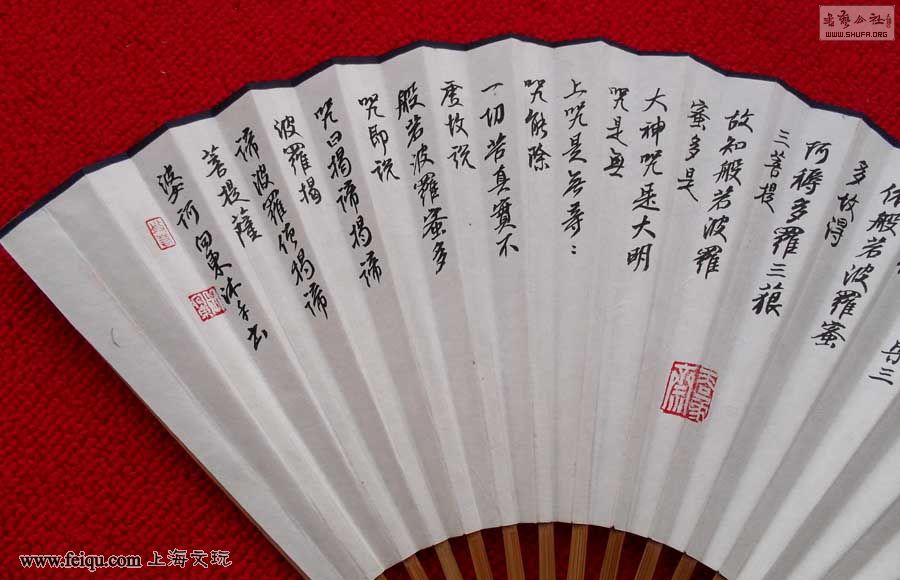 依般若波羅蜜
多故得
阿耨多羅三藐
三菩提
故知般若波羅
蜜多是
大神咒是大明
咒是無
上咒是無等：
咒能除
一切苦真實不
虛故說
般若波羅蜜多
咒即說
咒曰揭諦揭諦
波羅揭
諦波羅僧揭諦
菩提薩
婆訶
WWW.SHUFA.ORG
www.feiqu.com 上海文玩